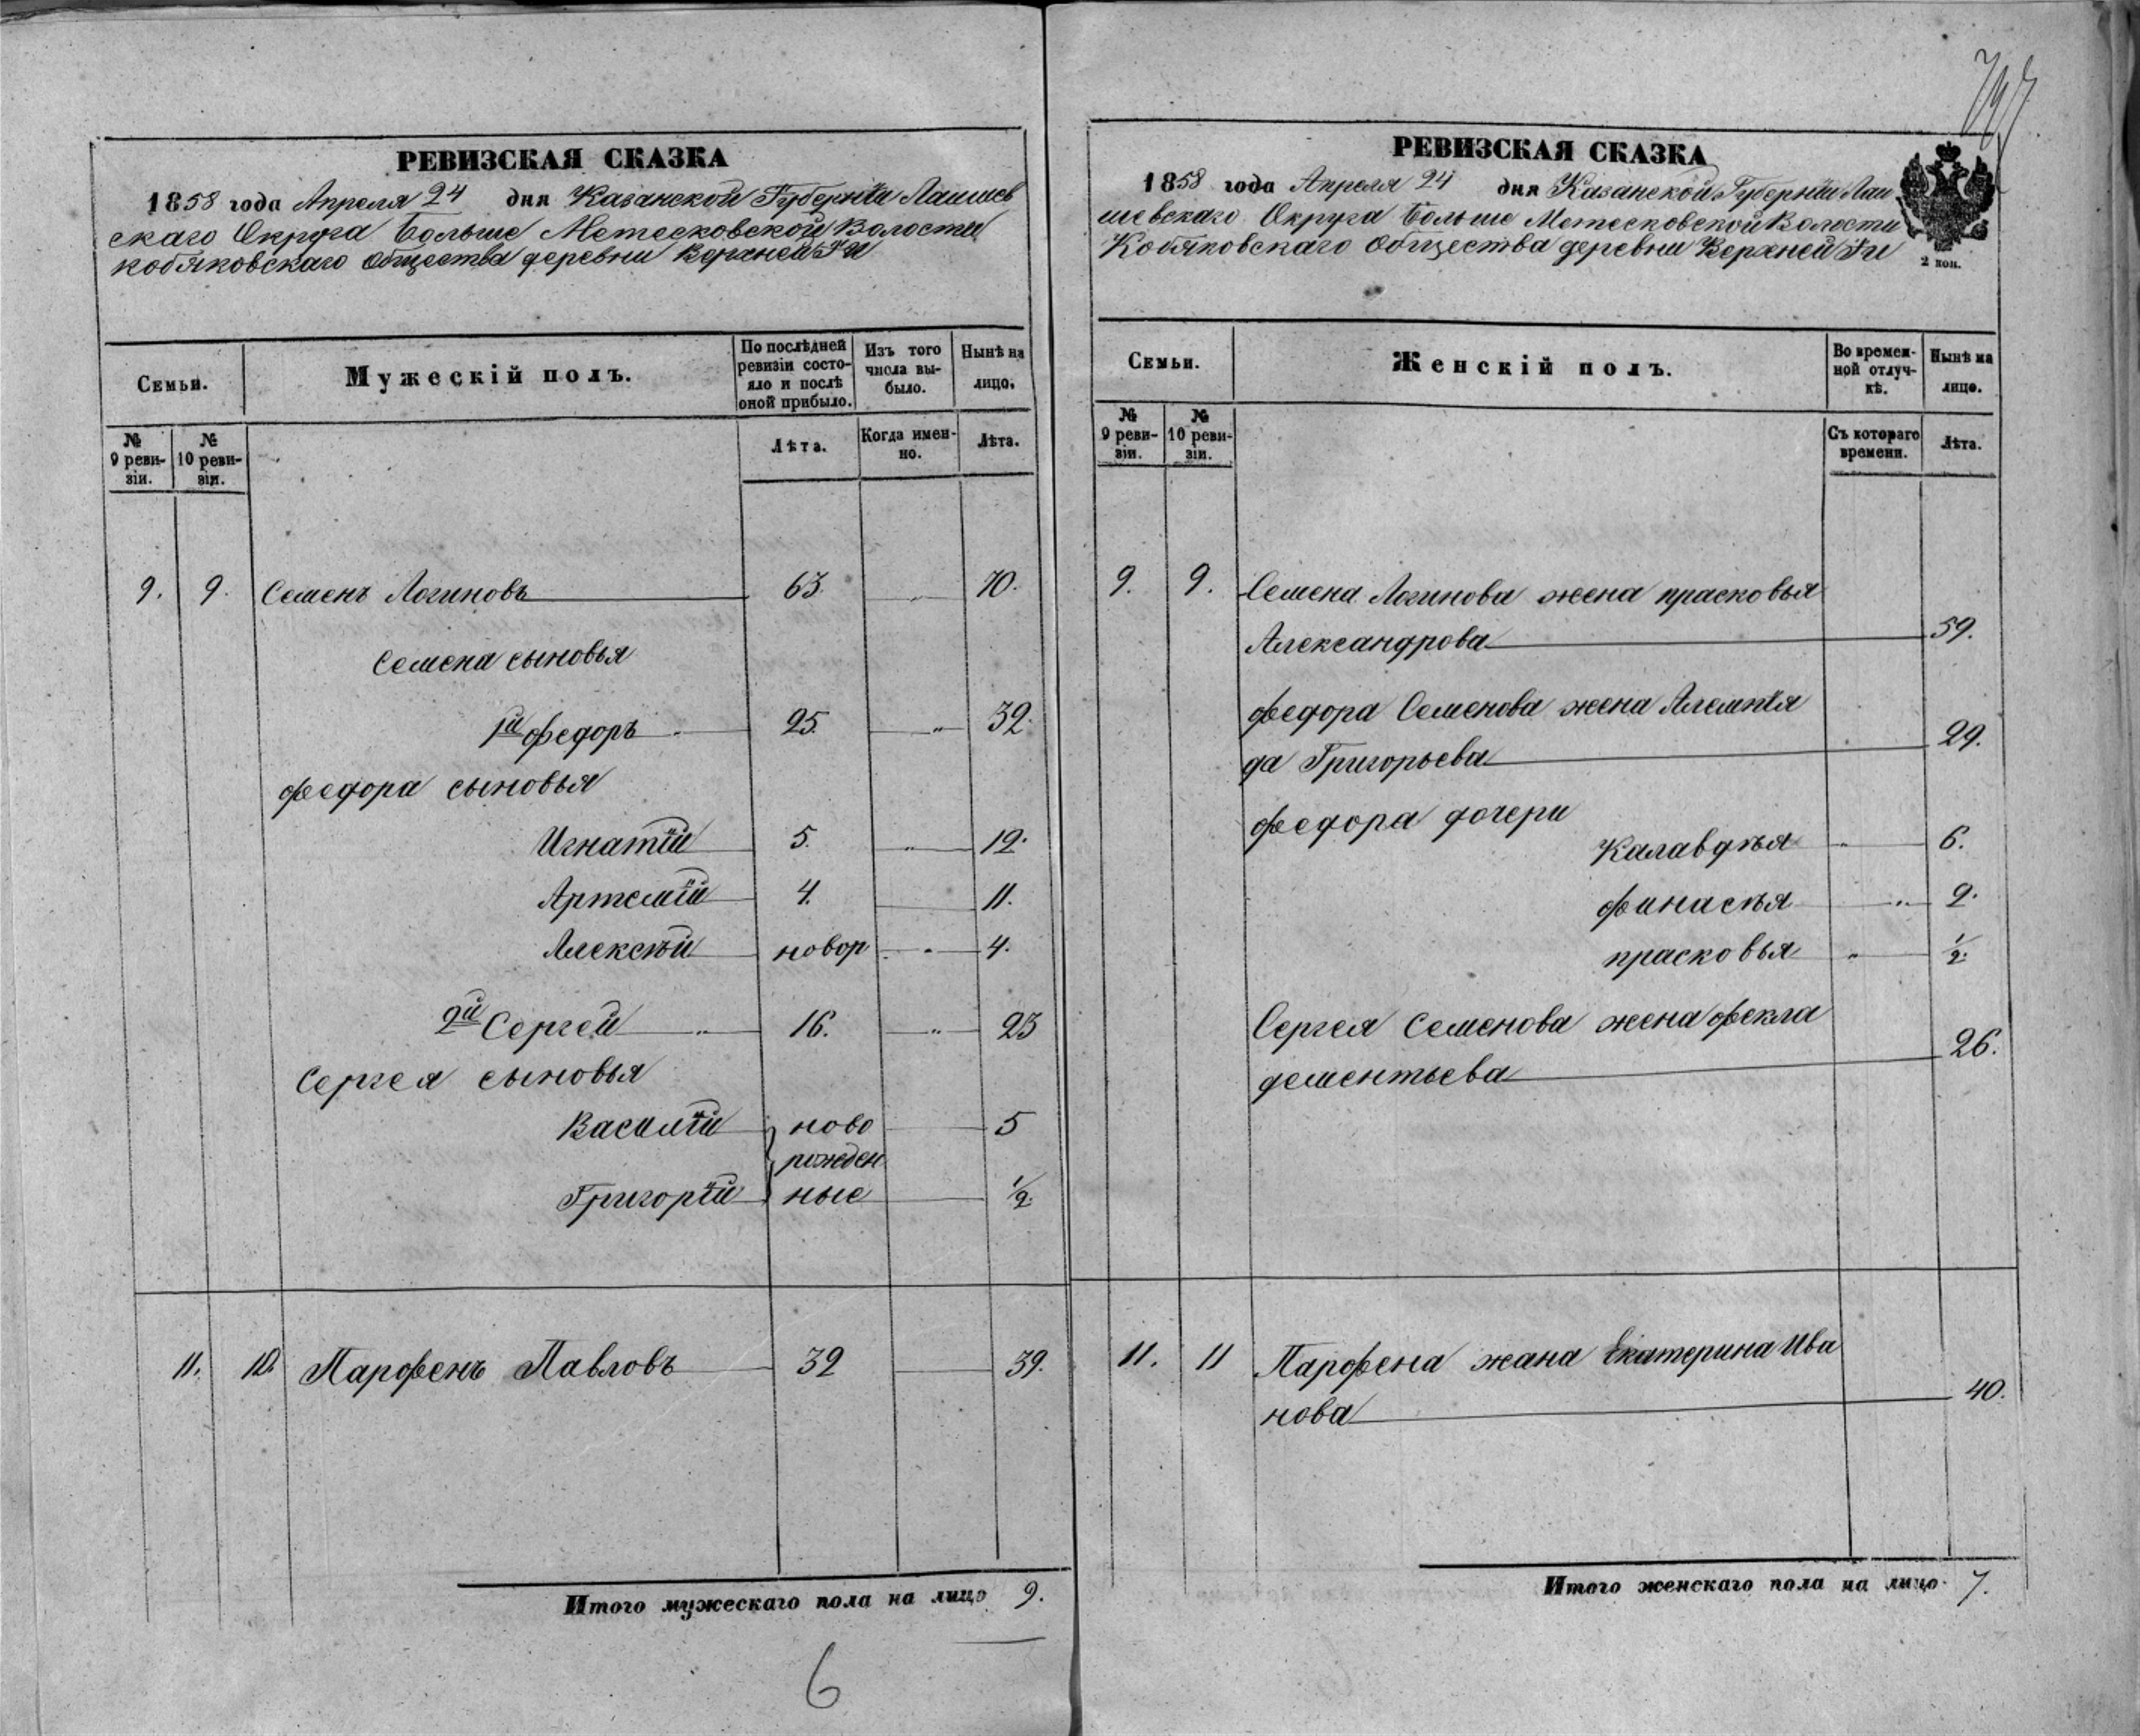 РЕВИЗСКАЯ СКАЗКА
1858 года Апреля 24 дня Казанской Губерніи Лаишев
скаго Округа Больше Метесковской Волости
кобяковскаго общества деревни Верхней Ги
Семьи.
Мужескій полъ.
По послѣдней ревизіи состояло и послѣ оной прибыло.
Изъ того числа выбыло.
Нынѣ на лицо.
№ 9 ревизіи.
№ 10 ревизіи.
Лѣта.
Когда именно.
Лѣта.
9. 9. Семенъ Логиновъ 63. 70.
Семена сыновья
1й федоръ 25. 32.
федора сыновья
Игнатій 5. 12.
Артемій 4. 11.
Алексѣй новор 4.
2й Сергей 16. 23
Сергея сыновья
Василій ново 5
рожден
Григорій ные 1/2.
11. 10. Парфенъ Павловъ 32 39.
Итого мужескаго пола на лицо 9.
6
РЕВИЗСКАЯ СКАЗКА
1858 года Апреля 24 дня Казанской Губерніи Лаи
шевскаго Округа Больше Метесковской Волости
Кобяковскаго общества деревни Верхней Ги
2 коп.
Семьи.
Женскій полъ.
Во временной отлучкѣ.
Нынѣ на лицо.
№ 9 ревизіи.
№ 10 ревизіи.
Съ котораго времени.
Лѣта.
9. 9. Семена Логинова жена прасковья
Александрова 59.
федора Семенова жена Алемпія
да Григорьева 29.
федора дочери
Калавдѣя 6.
финасѣя 2.
прасковья 1/2.
Сергея Семенова жена фекла
дементьева 26.
11. 11 Парфена жана Екатерина Ива
нова 40.
Итого женскаго пола на лицо 7.